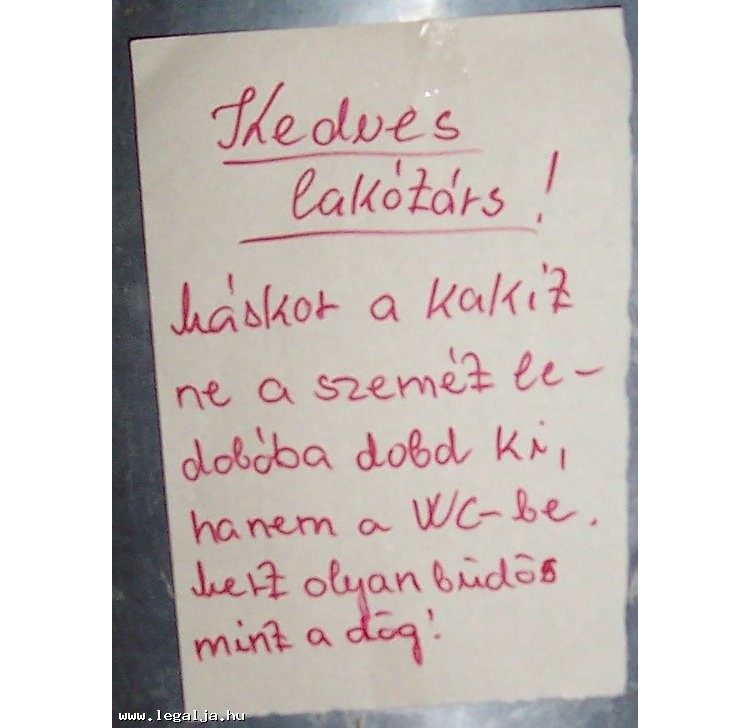 Kedves
lakótárs!
Máskor a kakit
ne a szemét le-
dobóba dobd ki,
hanem a WC-be.
Mert olyan büdös
mint a dög!
www.legalja.hu